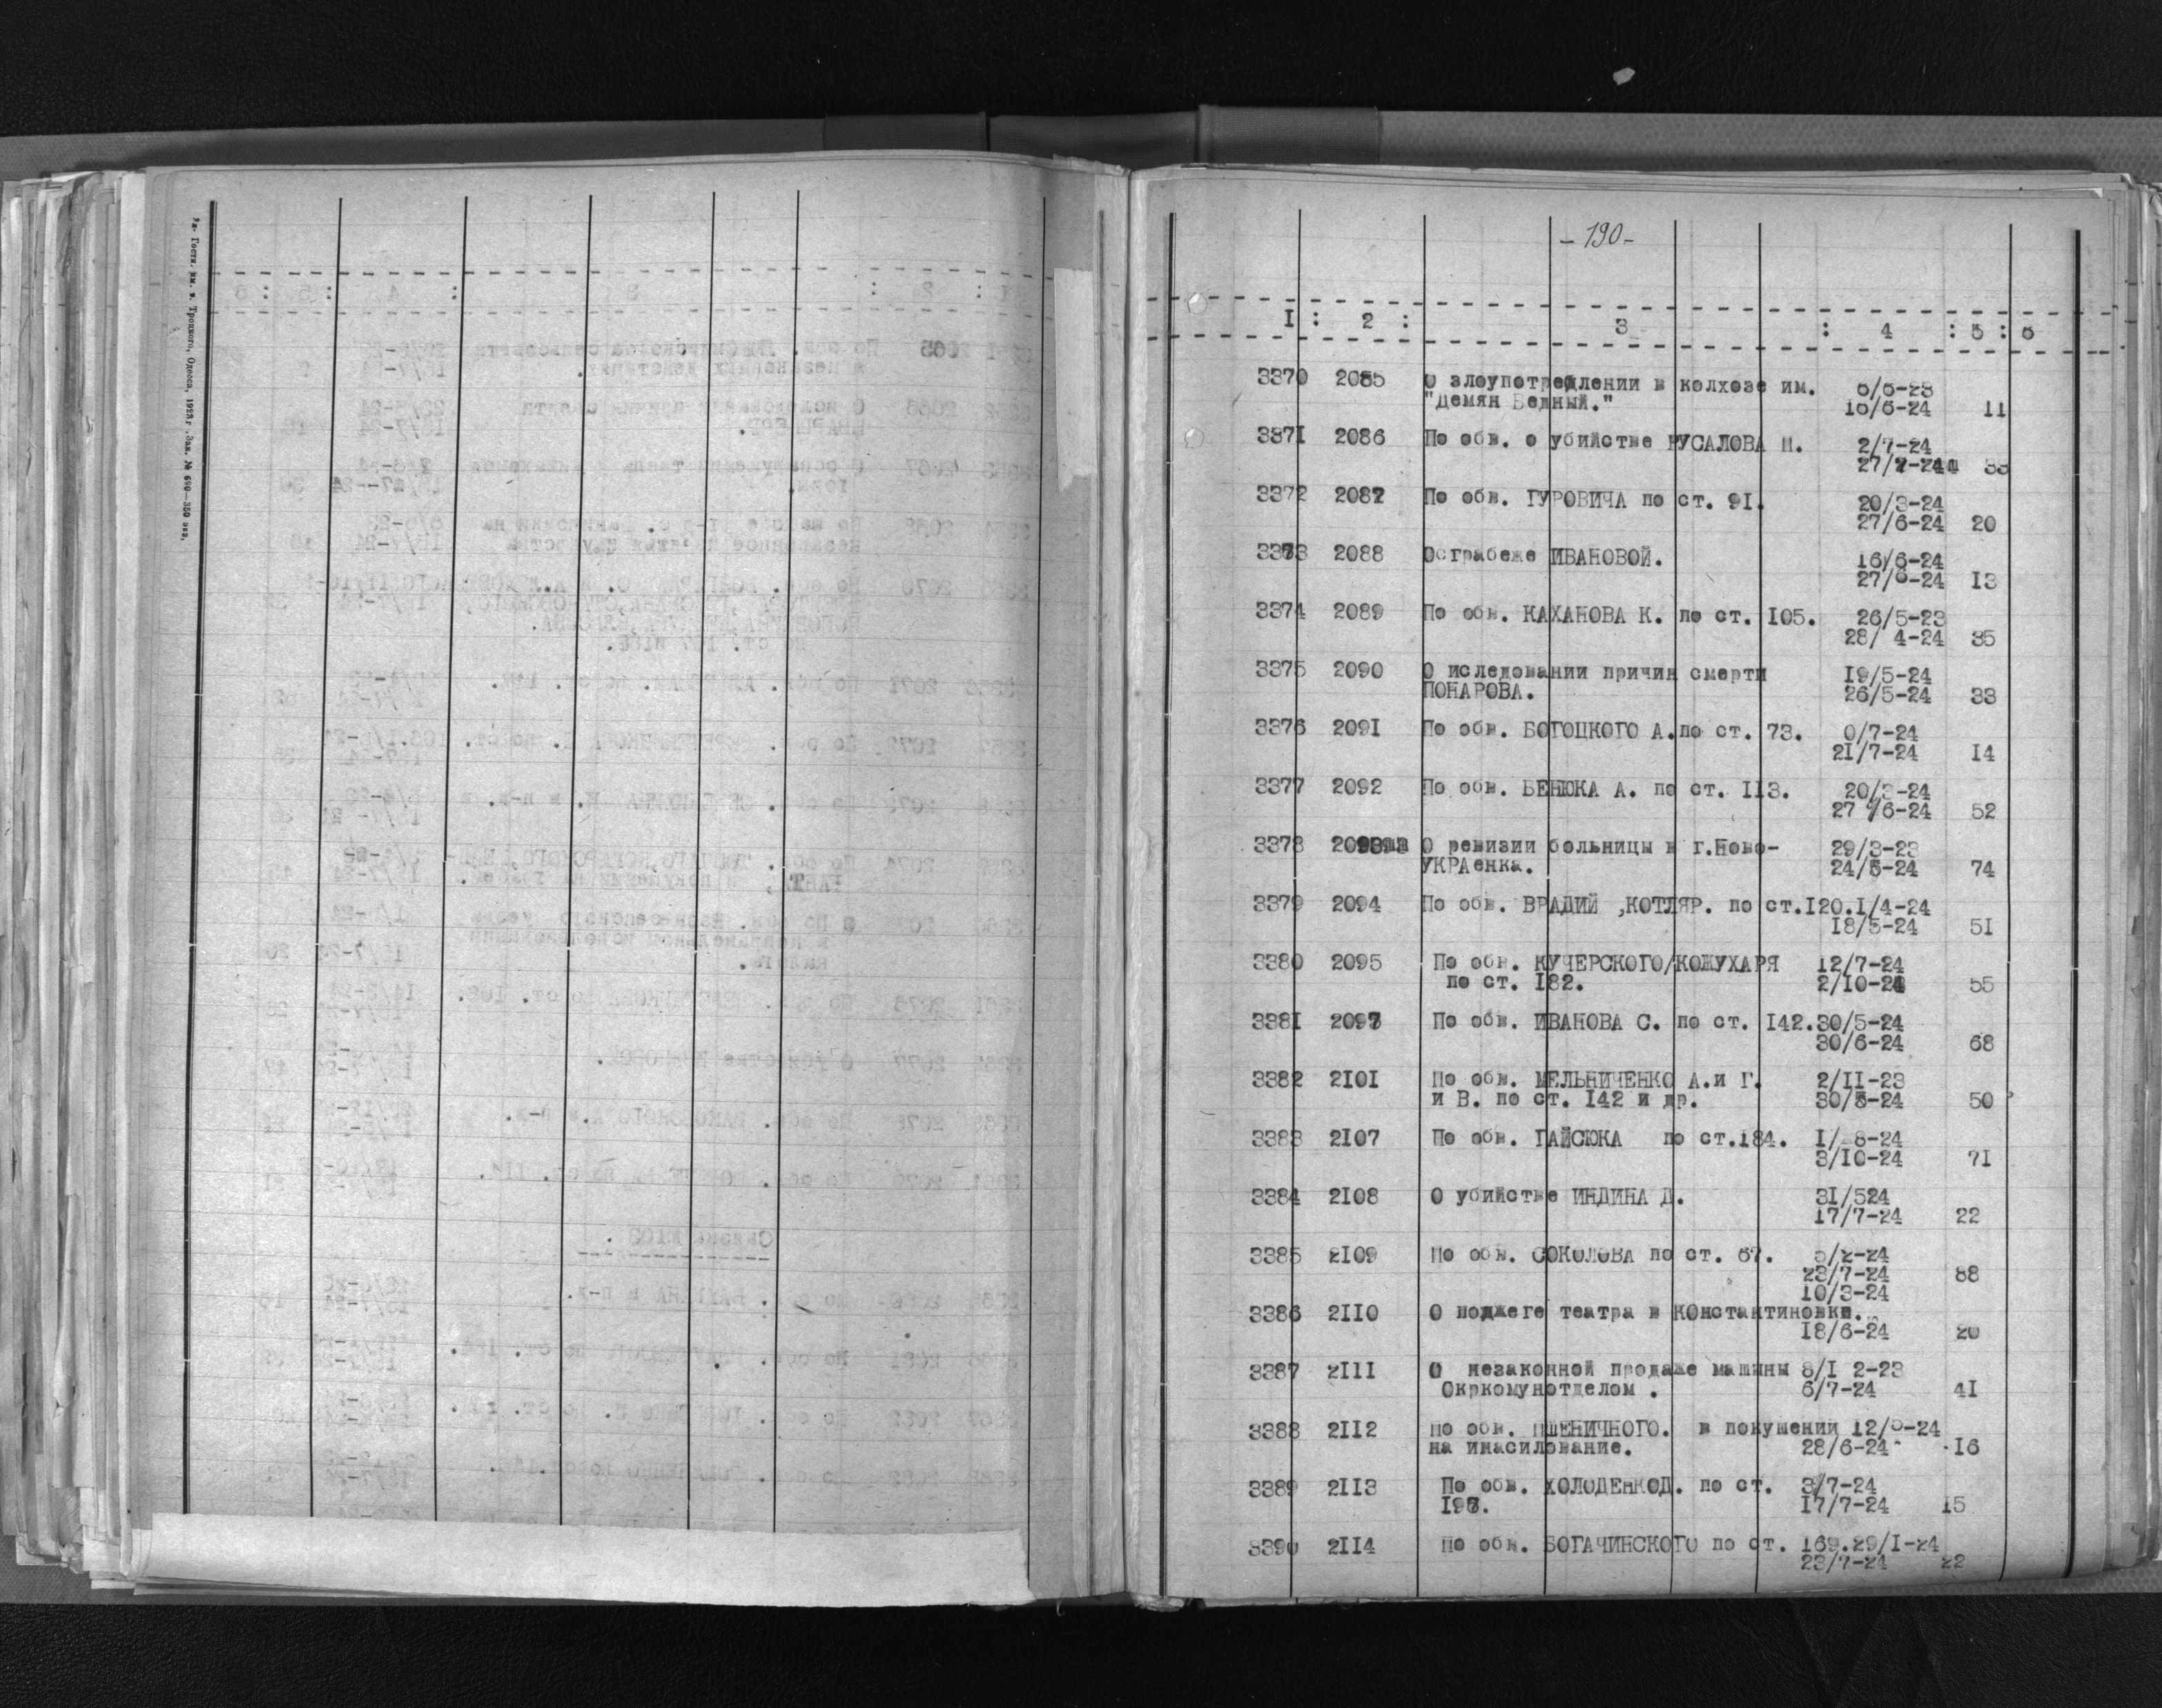 Гостт. им. т. Троцкого, Одесса, 1923 г. Зак. № 690—350 экз.
-190-
I : 2 : 3 : 4 : 5 : 6
3370 2085 О злоупотреблении в колхозе им. 6/6-23
"Демян Бедный." 16/6-24 11
3371 2086 По обв. о убийстве РУСАЛОВА Н. 2/7-24
33
3372 2087 По обв. ГУРОВИЧА по ст. 91. 20/3-24
27/6-24 20
3373 2088 О грабеже ИВАНОВОЙ. 16/6-24
27/6-24 13
3374 2089 По обв. КАХАНОВА К. по ст. 105. 26/5-23
28/ 4-24 35
3375 2090 О иследовании причин смерти 19/5-24
ПОНАРОВА. 26/5-24 33
3376 2091 По обв. БОГОЦКОГО А.по ст. 73. 0/7-24
21/7-24 14
3377 2092 По обв. БЕНЮКА А. по ст. 113. 20/3-24
27 /6-24 52
3378 2093 О ревизии больницы в г.Ново- 29/3-23
УКРАенка. 24/5-24 74
3379 2094 По обв. ВРАДИЙ ,КОТЛЯР. по ст.120.1/4-24
18/5-24 51
3380 2095 По обв. КУЧЕРСКОГО/КОЖУХАРЯ 12/7-24
по ст. 182. 2/10-24 55
3381 2097 По обв. ИВАНОВА С. по ст. 142.30/5-24
30/6-24 68
3382 2101 По обв. МЕЛЬНИЧЕНКО А.и Г. 2/11-23
и В. по ст. 142 и др. 30/5-24 50
3383 2107 По обв. ГАЙСЮКА по ст.184. 1/-8-24
3/10-24 71
3384 2108 О убийстве ИНДИНА Д. 31/524
17/7-24 22
3385 2109 По обв. СОКОЛОВА по ст. 67. 5/2-24
23/7-24 88
10/3-24
3386 2110 О поджеге театра в КОнстантиновке.
18/6-24 20
3387 2111 О незаконной продаже машины 8/1 2-23
Окркомунотделом . 6/7-24 41
3388 2112 По обв. ПШЕНИЧНОГО. в покушении 12/5-24
на инасилование. 28/6-24 16
3389 2113 По обв. ХОЛОДЕНКОД. по ст. 3/7-24
17/7-24 15
3390 2114 По обв. БОГАЧИНСКОГО по ст. 169.29/1-24
23/7-24 22